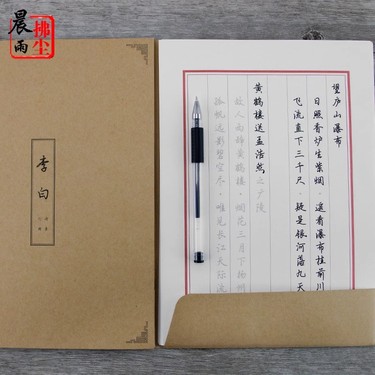 晨雨
拂尘
李白
望庐山瀑布
日照香炉生紫烟·遥看瀑布挂前川
飞流直下三千尺·疑是银河落九天
黄鹤楼送孟浩然之广陵
故人西辞黄鹤楼·烟花三月下扬州
孤帆远影碧空尽·唯见长江天际流